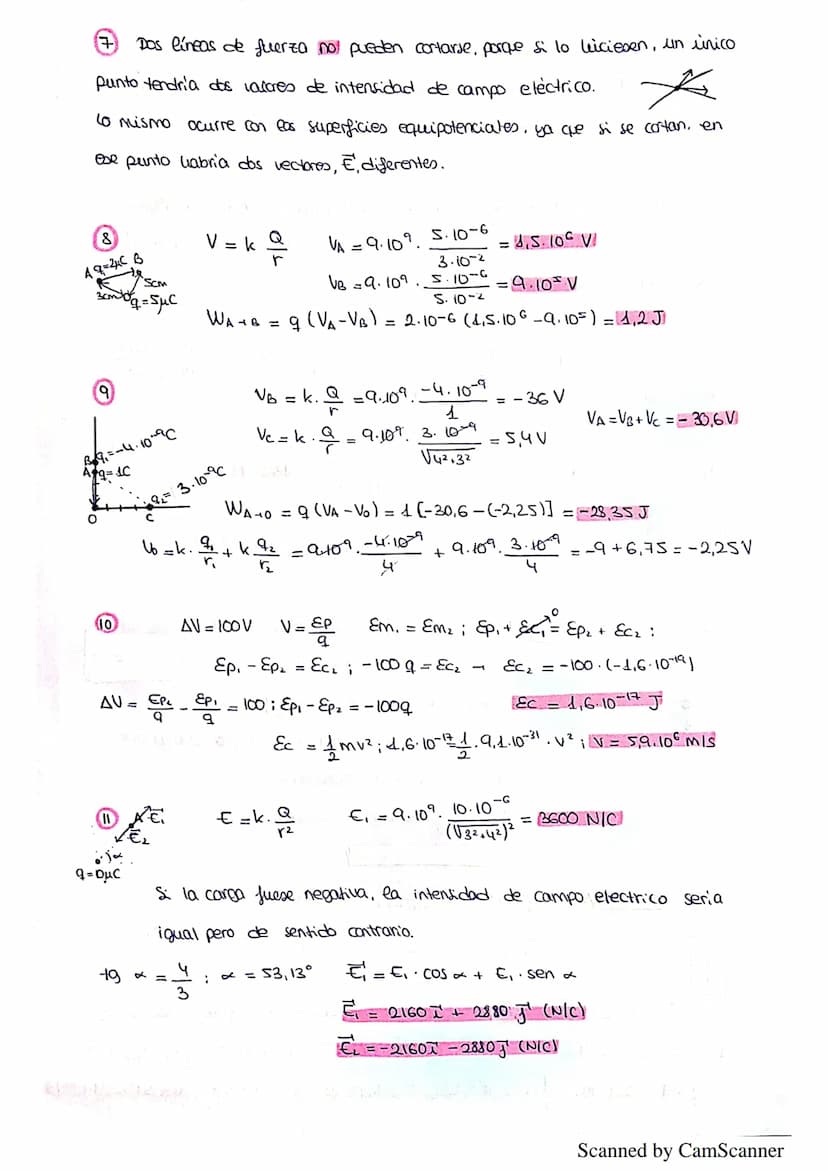 7 Dos líneas de fuerza no pueden cortarse, porque si lo hiciesen, un único
punto tendría dos valores de intensidad de campo eléctrico.
Lo mismo ocurre con las superficies equipotenciales, ya que si se cortan, en
ese punto habría dos vectores, E⃗, diferentes.
8 V = k Q/r VA = 9·10⁹ · 5·10⁻⁶/3·10⁻² = 1,5·10⁶ V
A q=2μC B 5cm 3cm q=5μC
VB = 9·10⁹ · 5·10⁻⁶/5·10⁻² = 9·10⁵ V
WA→B = q (VA-VB) = 2·10⁻⁶ (1,5·10⁶ - 9·10⁵) = 1,2 J
9 VB = k · Q/r = 9·10⁹ · -4·10⁻⁹/1 = -36 V
VC = k · Q/r = 9·10⁹ · 3·10⁻⁹/√4²+3² = 5,4 V VA = VB + VC = -30,6 V
B q₁=-4·10⁻⁹C
A q=1C
q₂=3·10⁻⁹C
O C
WA→O = q (VA-VO) = 1 [-30,6-(-2,25)] = -28,35 J
VO = k · q₁/r₁ + k q₂/r₂ = 9·10⁹ · -4·10⁻⁹/4 + 9·10⁹ · 3·10⁻⁹/4 = -9 + 6,75 = -2,25 V
10 ΔV = 100 V V = Ep/q Em₁ = Em₂ ; Ep₁ + Ec₁ 0 = Ep₂ + Ec₂ :
Ep₁ - Ep₂ = Ec₂ ; -100 q = Ec₂ → Ec₂ = -100 · (-1,6·10⁻¹⁹)
ΔV = Ep₂/q - Ep₁/q = 100 ; Ep₁ - Ep₂ = -100q Ec = 1,6·10⁻¹⁷ J
Ec = 1/2 mv² ; 1,6·10⁻¹⁷ = 1/2 · 9,1·10⁻³¹ · v² ; v = 5,9·10⁶ m/s
11 E⃗₁ E = k · Q/r² E₁ = 9·10⁹ · 10·10⁻⁶/(√3²+4²)² = 3600 N/C
E⃗₂
α
Si la carga fuese negativa, la intensidad de campo electrico seria
igual pero de sentido contrario.
tg α = 4/3 ; α = 53,13° E⃗₁ = E₁ · cos α + E₁ · sen α
E⃗₁ = 2160 i⃗ + 2880 j⃗ (N/C)
E⃗₂ = -2160 i⃗ - 2880 j⃗ (N/C)
Scanned by CamScanner